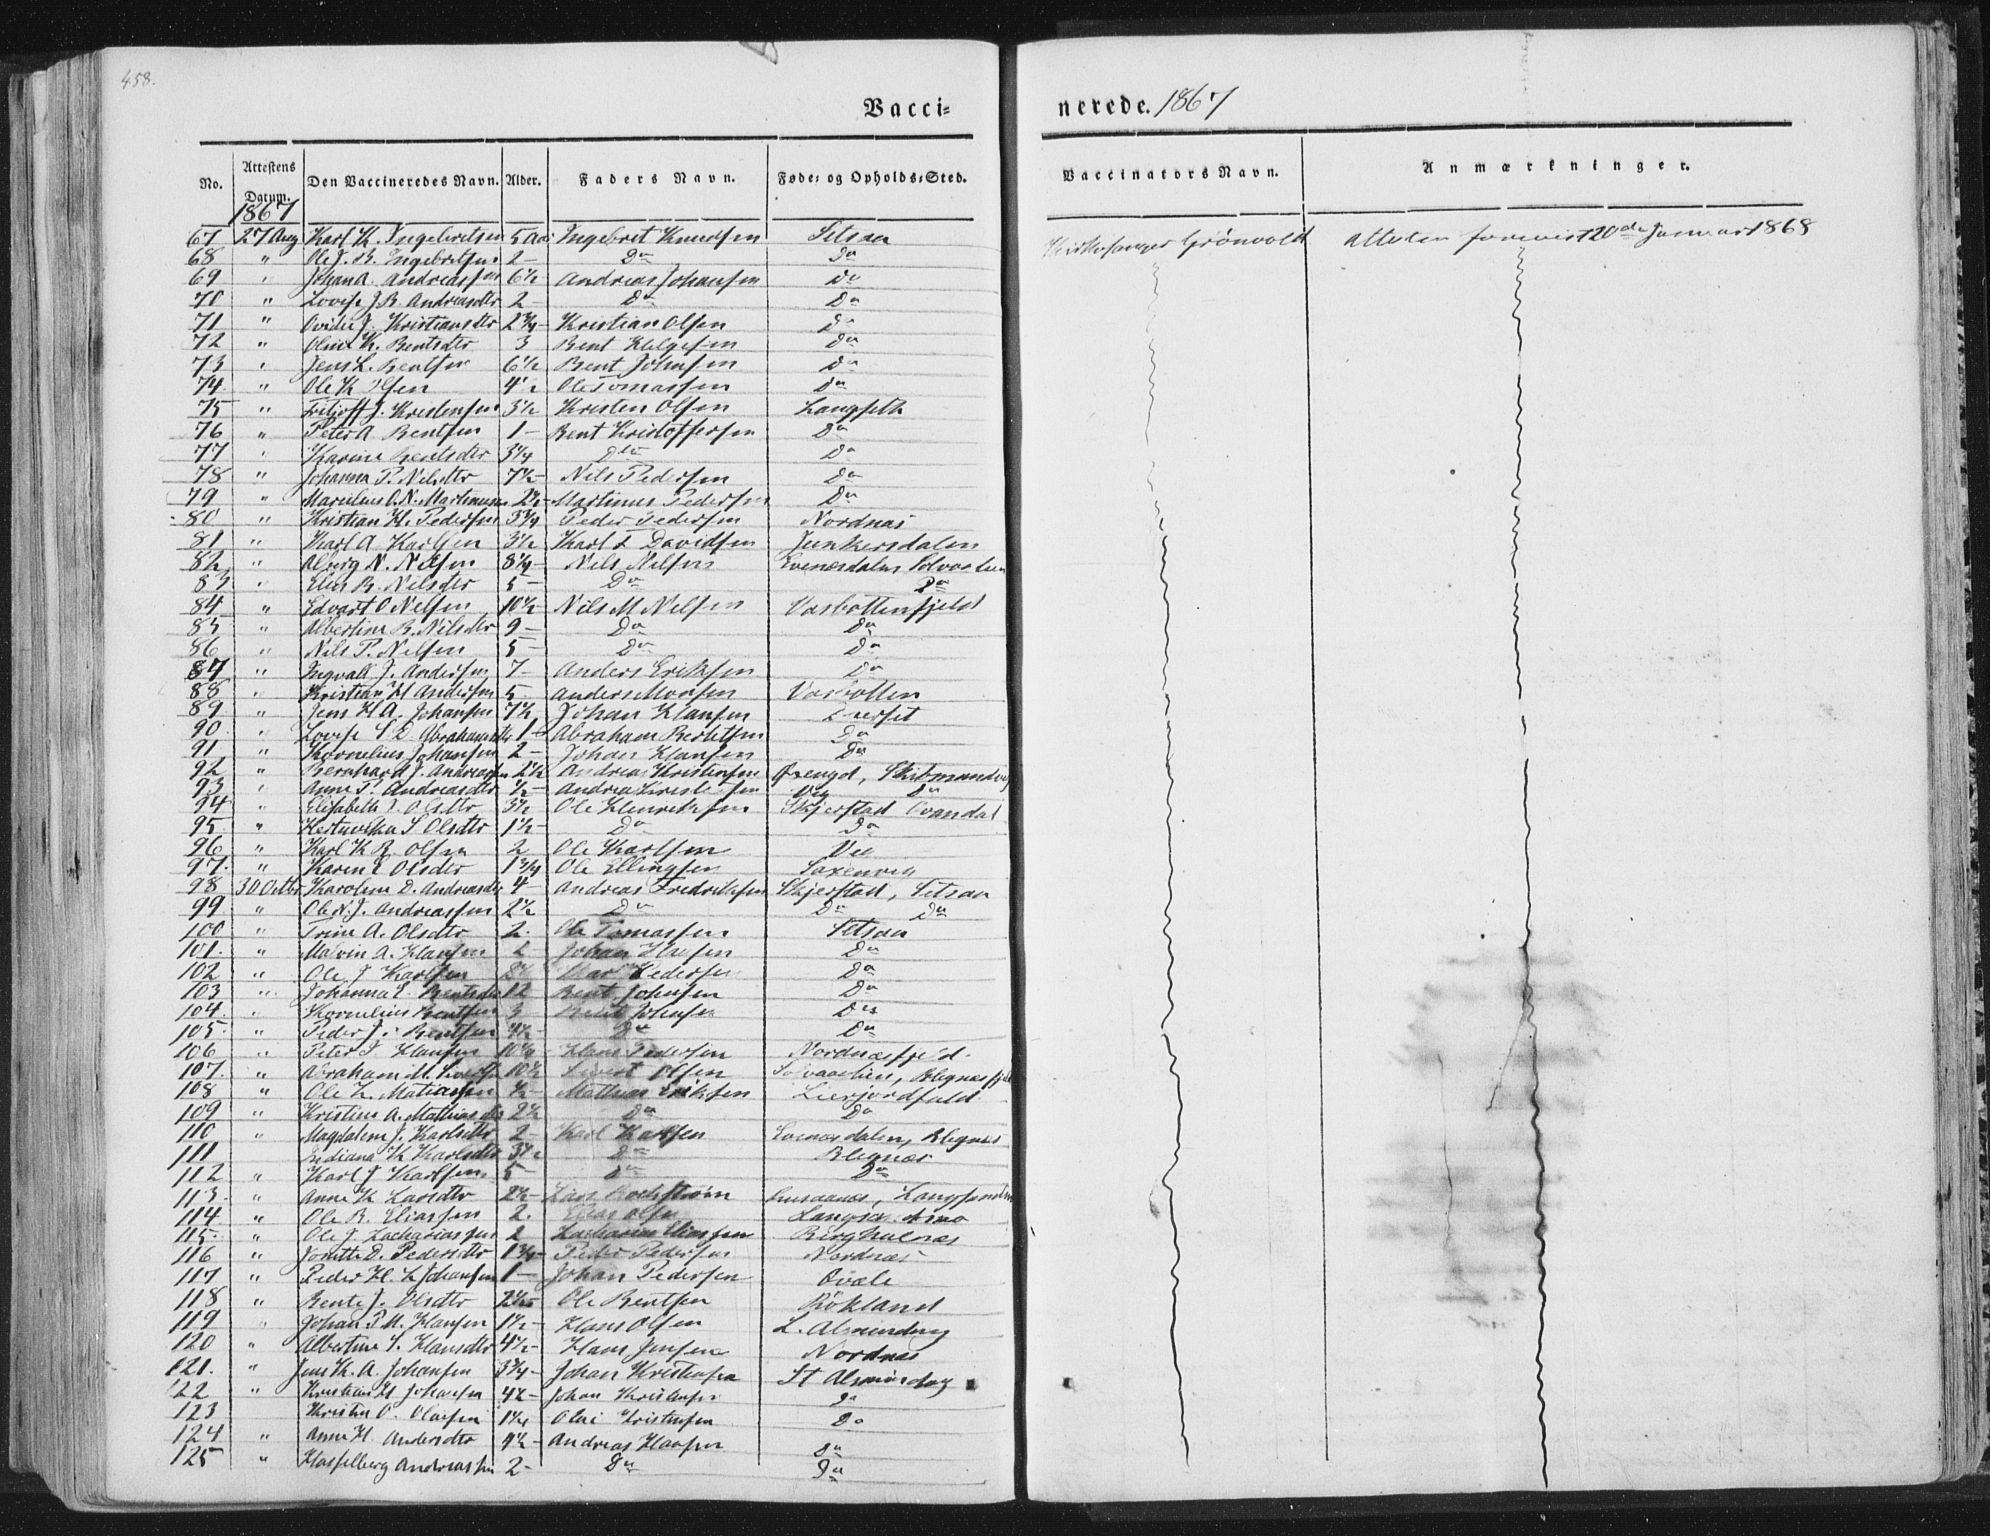 458.
Vacci=
nerede. 1867
No. Attestens Datum. Den Vaccineredes Navn. Alder. Faders Navn. Føde= og Opholds=Sted. Vaccinators Navn. Anmærkninger.
1867
67 27 Aug Karl K. Ingebretsen 5 Ingebret Knudsen Setsaa Kirkesanger Grönvold Attesten forevist 20de Januar 1868
68 " Ole J. B. Ingebretsen 2 - Do Do
69 " Johan A. Andreassen 6½ Andreas Johansen Do
70 " Lovise J. B. Andreasdtr 2 Do Do
71 " J. Kristiansdtr 2¾ - Kristian Olsen Do
72 " Oline K. Bentsdtr 3 Bent Helgesen Do
73 " Jens L. Bentsen 6½ Bent Johnsen Do
74 " Ole K Olsen 4½ Ole Tomassen Do
75 " Fritjoff J. Kristensen 3½ Kristen Olsen Langseth
76 " Peter A Bentsen 1 - Bent Kristoffersen Do
77 " Karine Bentsdtr 3¼ Do Do
78 " Johanna P. Nilsdtr 7½ - Nils Pedersen Do
79 " Marelius O. N. Martinusen 2½ - Martinus Pedersen Do
80 " Kristian H. Pedersen 3¾ Peder Pedersen Nordnæs
81 " Karl A Karlsen 3½ Karl Davidsen Junkersdalen
82 " N. Nilsen 8¼ - Nils Nilsen Evenesdalen Solvaaelien
83 " Elen B. Nilsdtr 5 - Do Do
84 " Edvart O Nilsen 10½ Nils M Nilsen Vasbottenfjeld
85 " Albertine B. Nilsdtr 9 - Do Do
86 " Nils P. Nilsen 5 - Do Do
87 " Ingvald J. Andersen 7 - Anders Eriksen Do
88 " Kristian H Andersen 5 Anders Monsen Vasbotten
89 " Jens H A. Johansen 7½ Johan Hansen
90 " Lovise S. E. Abrahamsdtr 1 - Abraham Berntsen Do
91 " Kornelius Johansen 2 - Johan Hansen Do
92 " Bernhard J. Andreassen 2½ Andreas Kristensen Øxengd,
93 " Anne P. Andreasdtr ½ - Andreas Kristensen Do
94 " Elisabeth J. Olsdtr 3½ Ole Henriksen Skjerstad
95 " S Olsdtr 1½ - Do Do
96 " Karl K B. Olsen 2 Ole Karlsen
97. " Karen E Olsdtr 1¾ Ole Ellingsen Saxenvig
98 30 Octbr Karoline D. Andreasdtr 4 - Andreas Fredriksen Skjerstad, Setsaa
99 " Ole N. J. Andreassen 2½ Do Do Do
100 " Trine A. Olsdtr 2. Ole Tomassen Setsaa
101. " Malvin A. Hansen 2 Johan Hansen Do
102 " Ole J Karlsen Karl Pedersen Do
103 " Johanna E. Bentsdtr 12 Bent Johnsen Do
104. " Kornelius Bentsen 3 Bent Johnsen Do
105. " Peder J. Bentsen 4½ - Do Do
106 " Peter J. Hansen 10¼ Hans Pedersen Nordnæsfjeld.
107. " Abraham M. 10½ Sivert Olsen Solvaaelien,
108 " Ole L. Matiassen ½ - Mathias Eriksen
109 " Kristine A. Mathiasdtr 2½ Do Do
110 " Magdalene J. Karlsdtr 2 - Karl Karlsen Evenesdalen,
111 " Indiana K Karlsdtr 3½ Do
112 " Karl J Karlsen 5 Do Do
113. " Anne K Larsdtr 2½ - Lars
114. " Ole B. Eliassen 2. Elias Olsen
115. " Ole J. Zachariassen 2 Zacharias Eliassen
116 " Jorette D. Pedersdtr 1¾ - Peder Pedersen Nordnæs
117 " Peder H. L Johansen 1 - Johan Pedersen
118 " Bente J. Olsdtr 2½ Ole Bentsen Rökland
119 " Johan P. M. Hansen 1½ - Hans Olsen L. Almindng
120 " Albertine S. Hansdtr 4½ - Hans Jensen Nordnæs
121. " Jens K. A Johansen 3¾ - Johan Kristiansen St
122 " Kristian H Johansen 4½ - Johan Kristiansen Do
123 Kristen O. Olaisen 1¼ Olai Kristensen Do
124 " Anne H. Andersdtr 9½ - Andreas Hansen Do
125 " Hasselberg Andreassen 2 - Do Do